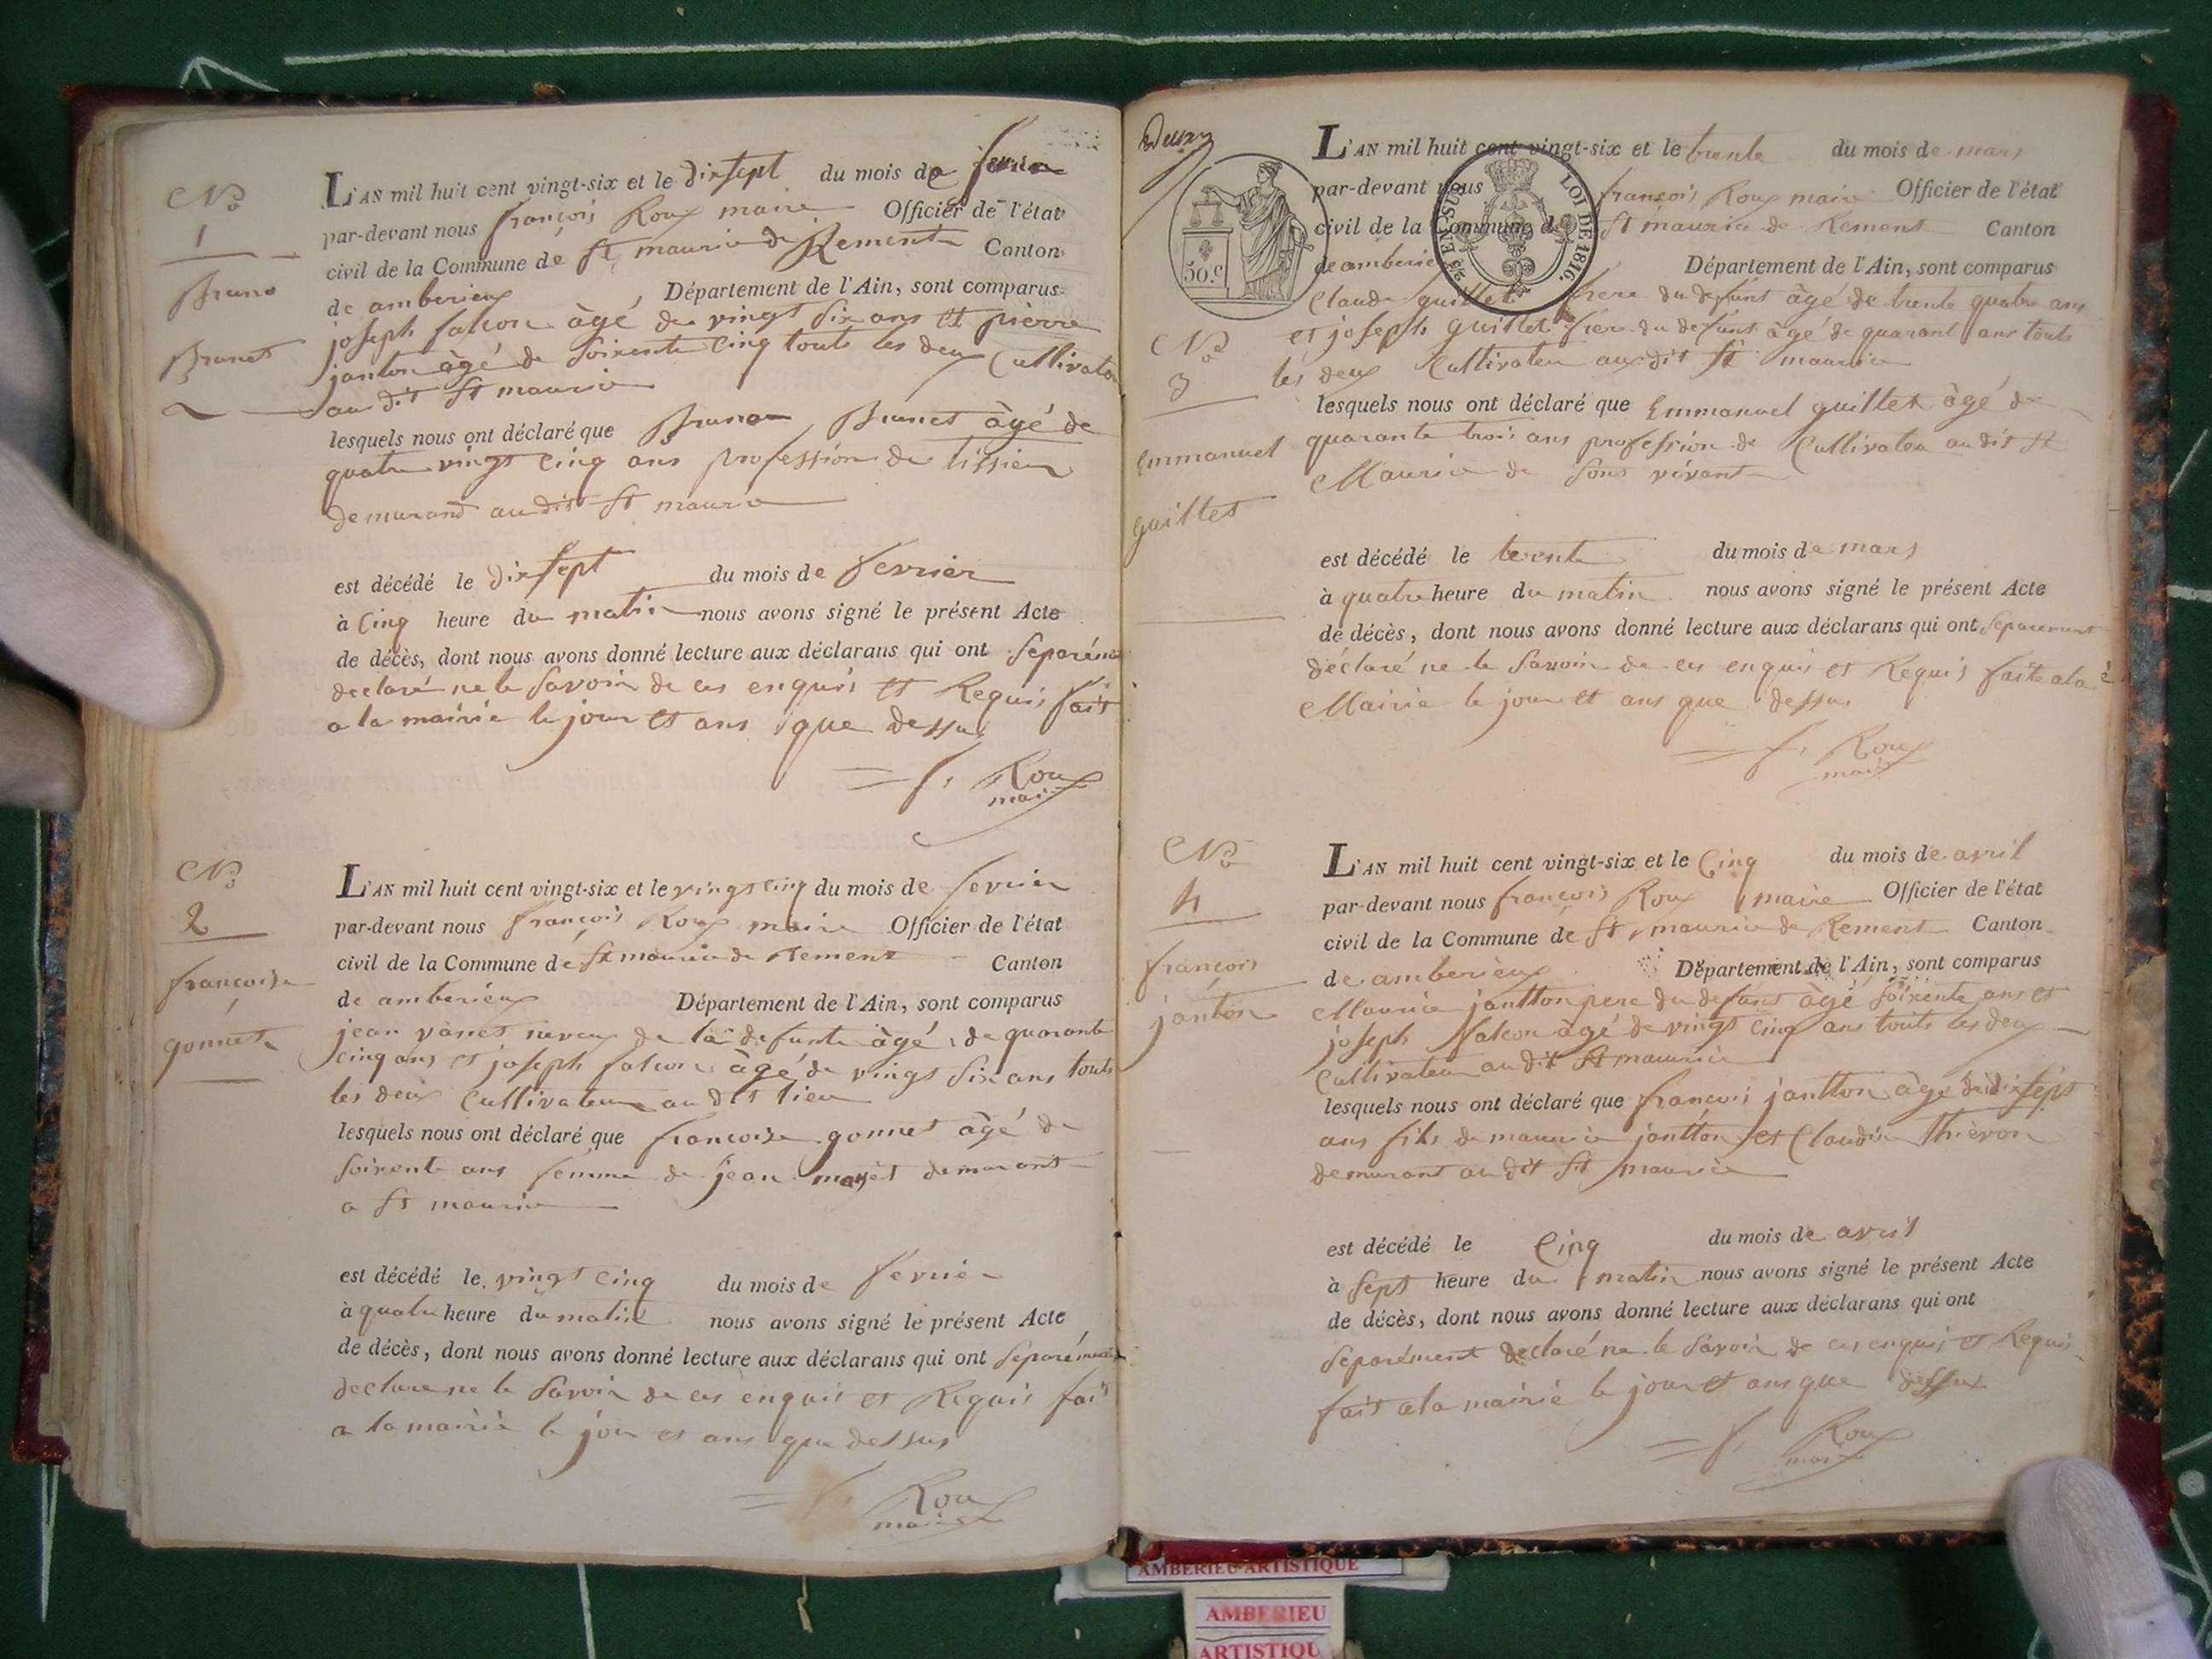 No
1
Bruno
Brunet
L'AN mil huit cent vingt-six et le dixsept du mois de
par-devant nous françois Roux maire Officier de l'état
civil de la Commune de St maurice de Rement Canton
de amberieux Département de l'Ain, sont comparus
joseph falcon âgé de vingt six ans et pierre
janton âgé de soixente cinq touts les deux Cultivateu
au dit St maurice
lesquels nous ont déclaré que Bruno Brunet âgé de
quatre vingt cinq ans profession de tissier
demurand au dit St maurice
est décédé le dixsept du mois de fevrier
à cinq heure du matin nous avons signé le présent Acte
de décès, dont nous avons donné lecture aux déclarans qui ont Séparéme
declaré ne le savoir de ces enquis et Requis fait
a la mairie le jour et ans que dessus
f. Roux
maire
No
2
françoise
gonnet
L'AN mil huit cent vingt-six et le vingt cinq du mois de fevrier
par-devant nous françois Roux maire Officier de l'état
civil de la Commune de St maurice de Rement Canton
de amberieux Département de l'Ain, sont comparus
jean neveux de la defunte âgé de quarante
cinq ans et joseph falcon âgé de vingt six ans touts
les deux Cultivateurs au dit lieu
lesquels nous ont déclaré que francoise gonnet âgé de
soixente ans femme de jean demurant
a St maurice
est décédé le vingt cinq du mois de fevrier
à quatre heure du matin nous avons signé le présent Acte
de décès, dont nous avons donné lecture aux déclarans qui ont Separément
declare ne le savoir de ces enquis et Requis fait
a la mairie le jour et ans que dessus
f. Roux
maire
Deux
50.c
LOI DE 1816.
2/5 EN SUS
No
3
Emmanuel
guillet
L'AN mil huit cent vingt-six et le trente du mois de mars
par-devant nous françois Roux maire Officier de l'état
civil de la Commune de St maurice de Rement Canton
de amberieu Département de l'Ain, sont comparus
Claude guillet frere du defunt âgé de trente quatre ans
et joseph guillet frere du defunt âgé de quarant ans touts
les deux Cultivateu au dit St maurice
lesquels nous ont déclaré que Emmanuel guillet âgé de
quarante trois ans profession de Cultivateu au dit St
Maurice de sons vivant
est décédé le trente du mois de mars
à quatre heure du matin nous avons signé le présent Acte
de décès, dont nous avons donné lecture aux déclarans qui ont Separement
déclaré ne le savoir de ces enquis et Requis faite a la
Mairie le jour et ans que dessus
f. Roux
maire
No
4
françois
janton
L'AN mil huit cent vingt-six et le Cinq du mois de avril
par-devant nous françois Roux maire Officier de l'état
civil de la Commune de St maurice de Rement Canton
de amberieux Département de l'Ain, sont comparus
Maurice jantton pere du defunt âgé soixente ans et
joseph falcon âgé de vingt cinq ans touts les deux
Cultivateur au dit St maurice
lesquels nous ont déclaré que françois jantton âgé de dixsept
ans fils de maurice jantton et Claudine Thievon
demurant au dit St maurice
est décédé le Cinq du mois de avril
à Sept heure du matin nous avons signé le présent Acte
de décès, dont nous avons donné lecture aux déclarans qui ont
Separément declaré ne le savoir de ces enquis et Requis
fait a la mairie le jour et ans que dessus
f. Roux
maire
AMBERIEU ARTISTIQUE
AMBERIEU
ARTISTIQU